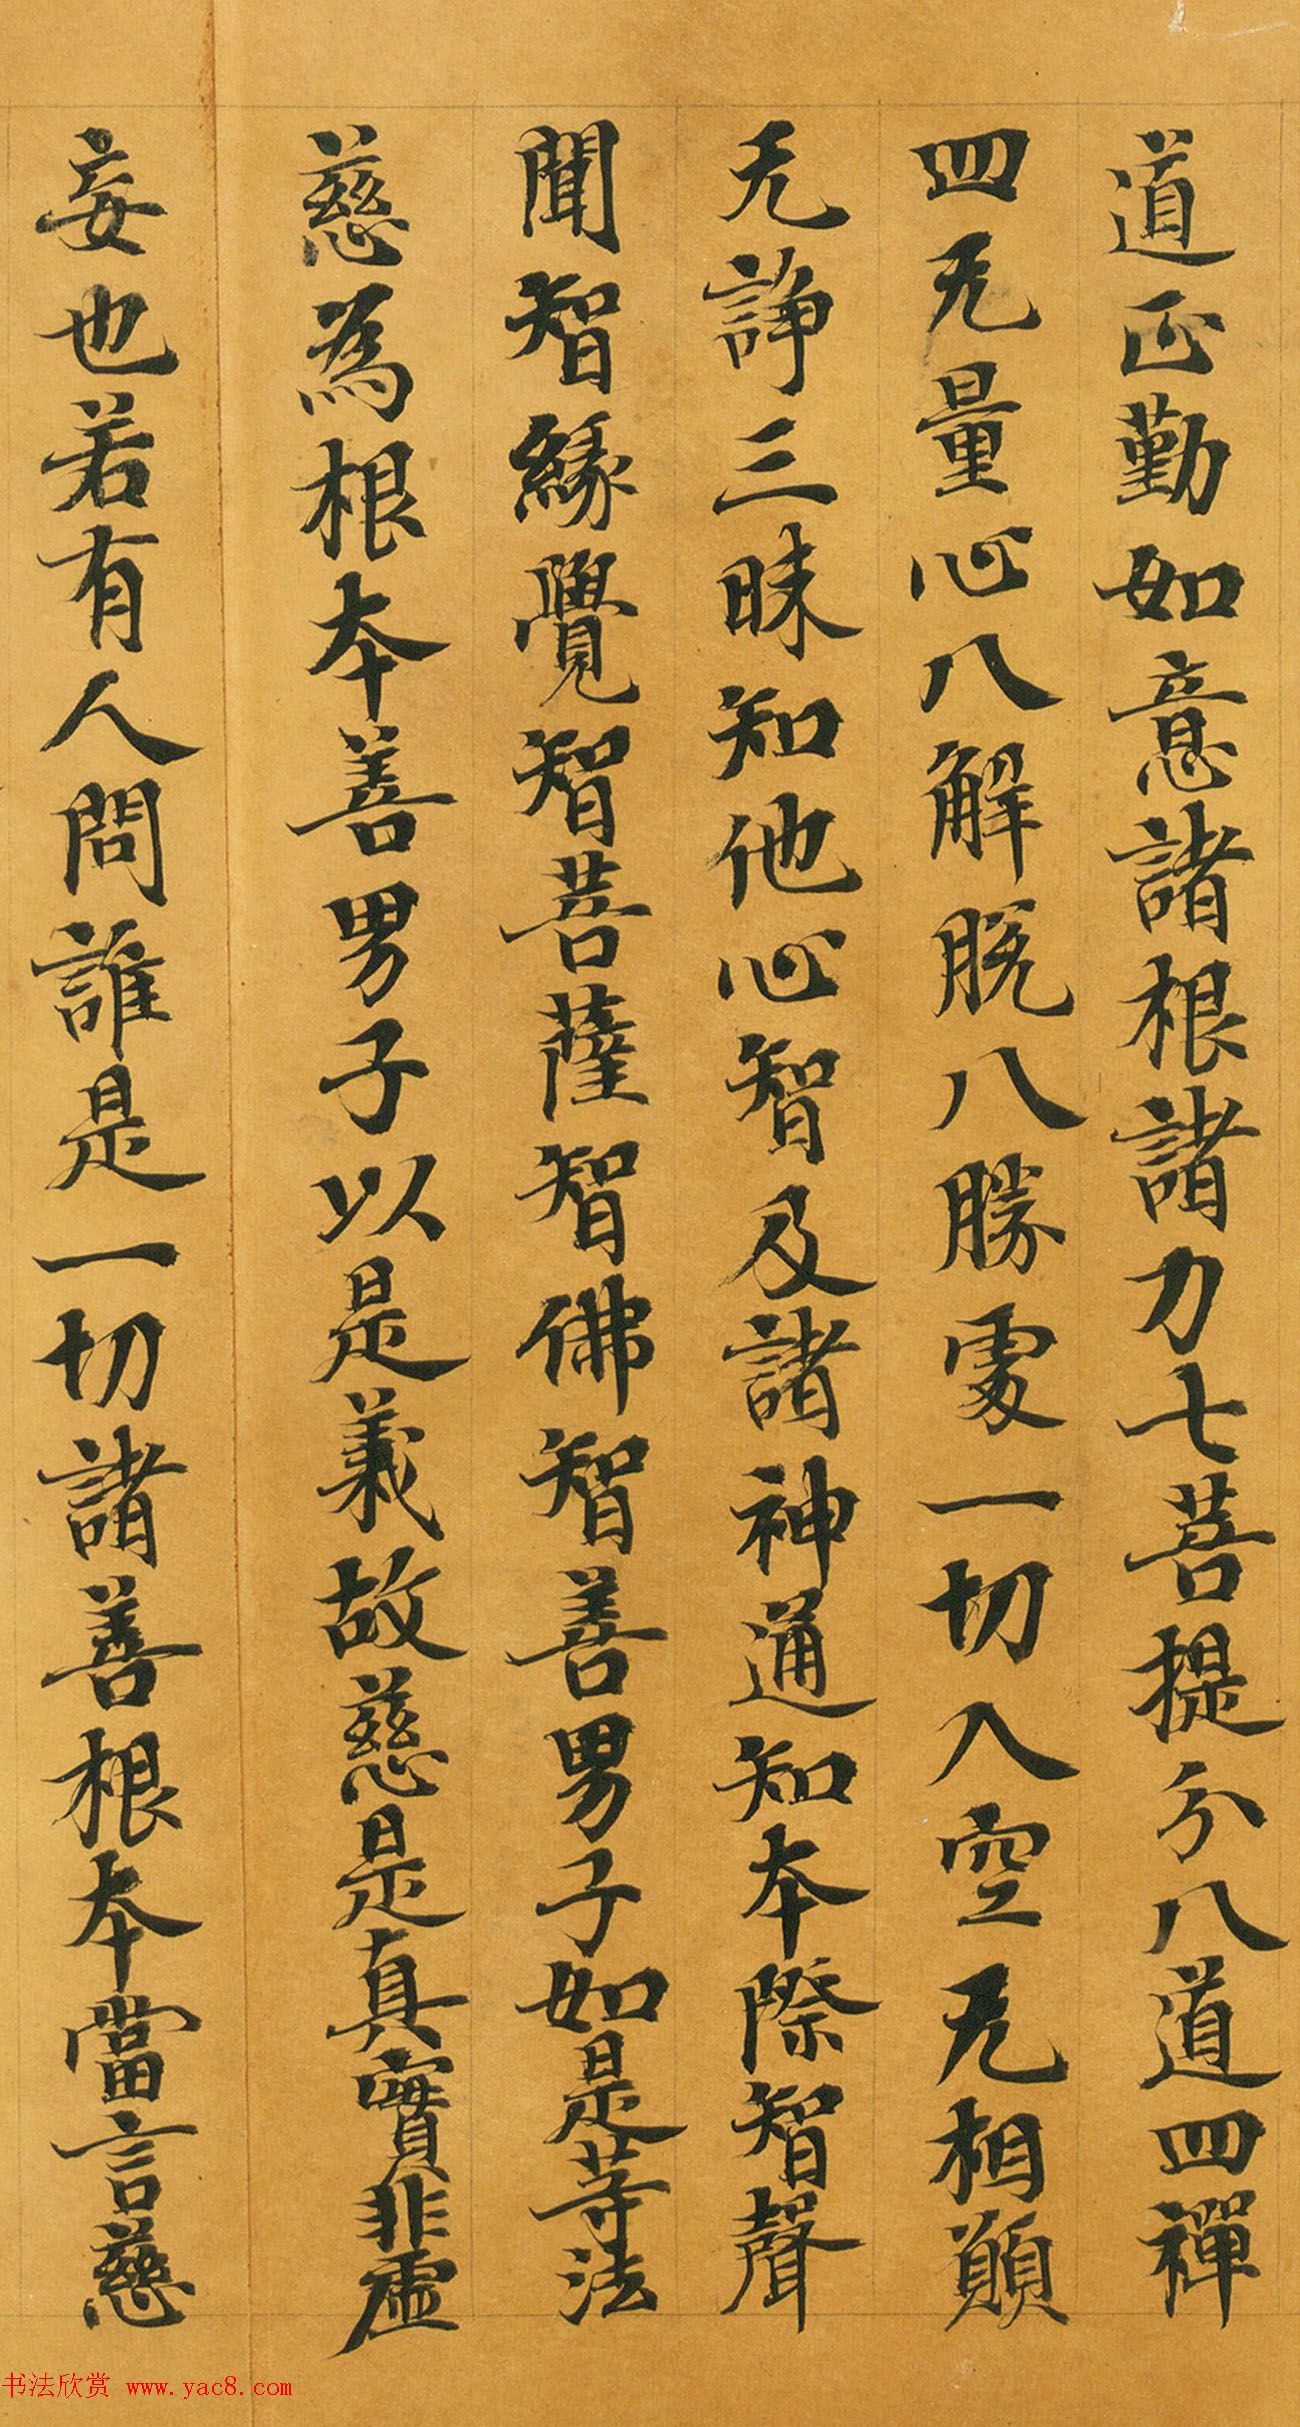 道正勤如意諸根諸力七菩提分八道四禪
四无量心八解脫八勝處一切入空无相願
无諍三昧知他心智及諸神通知本際智聲
聞智緣覺智菩薩智佛智善男子如是等法
慈為根本善男子以是義故慈是真實非虛
妄也若有人問誰是一切諸善根本當言慈
书法欣赏 www.yac8.com